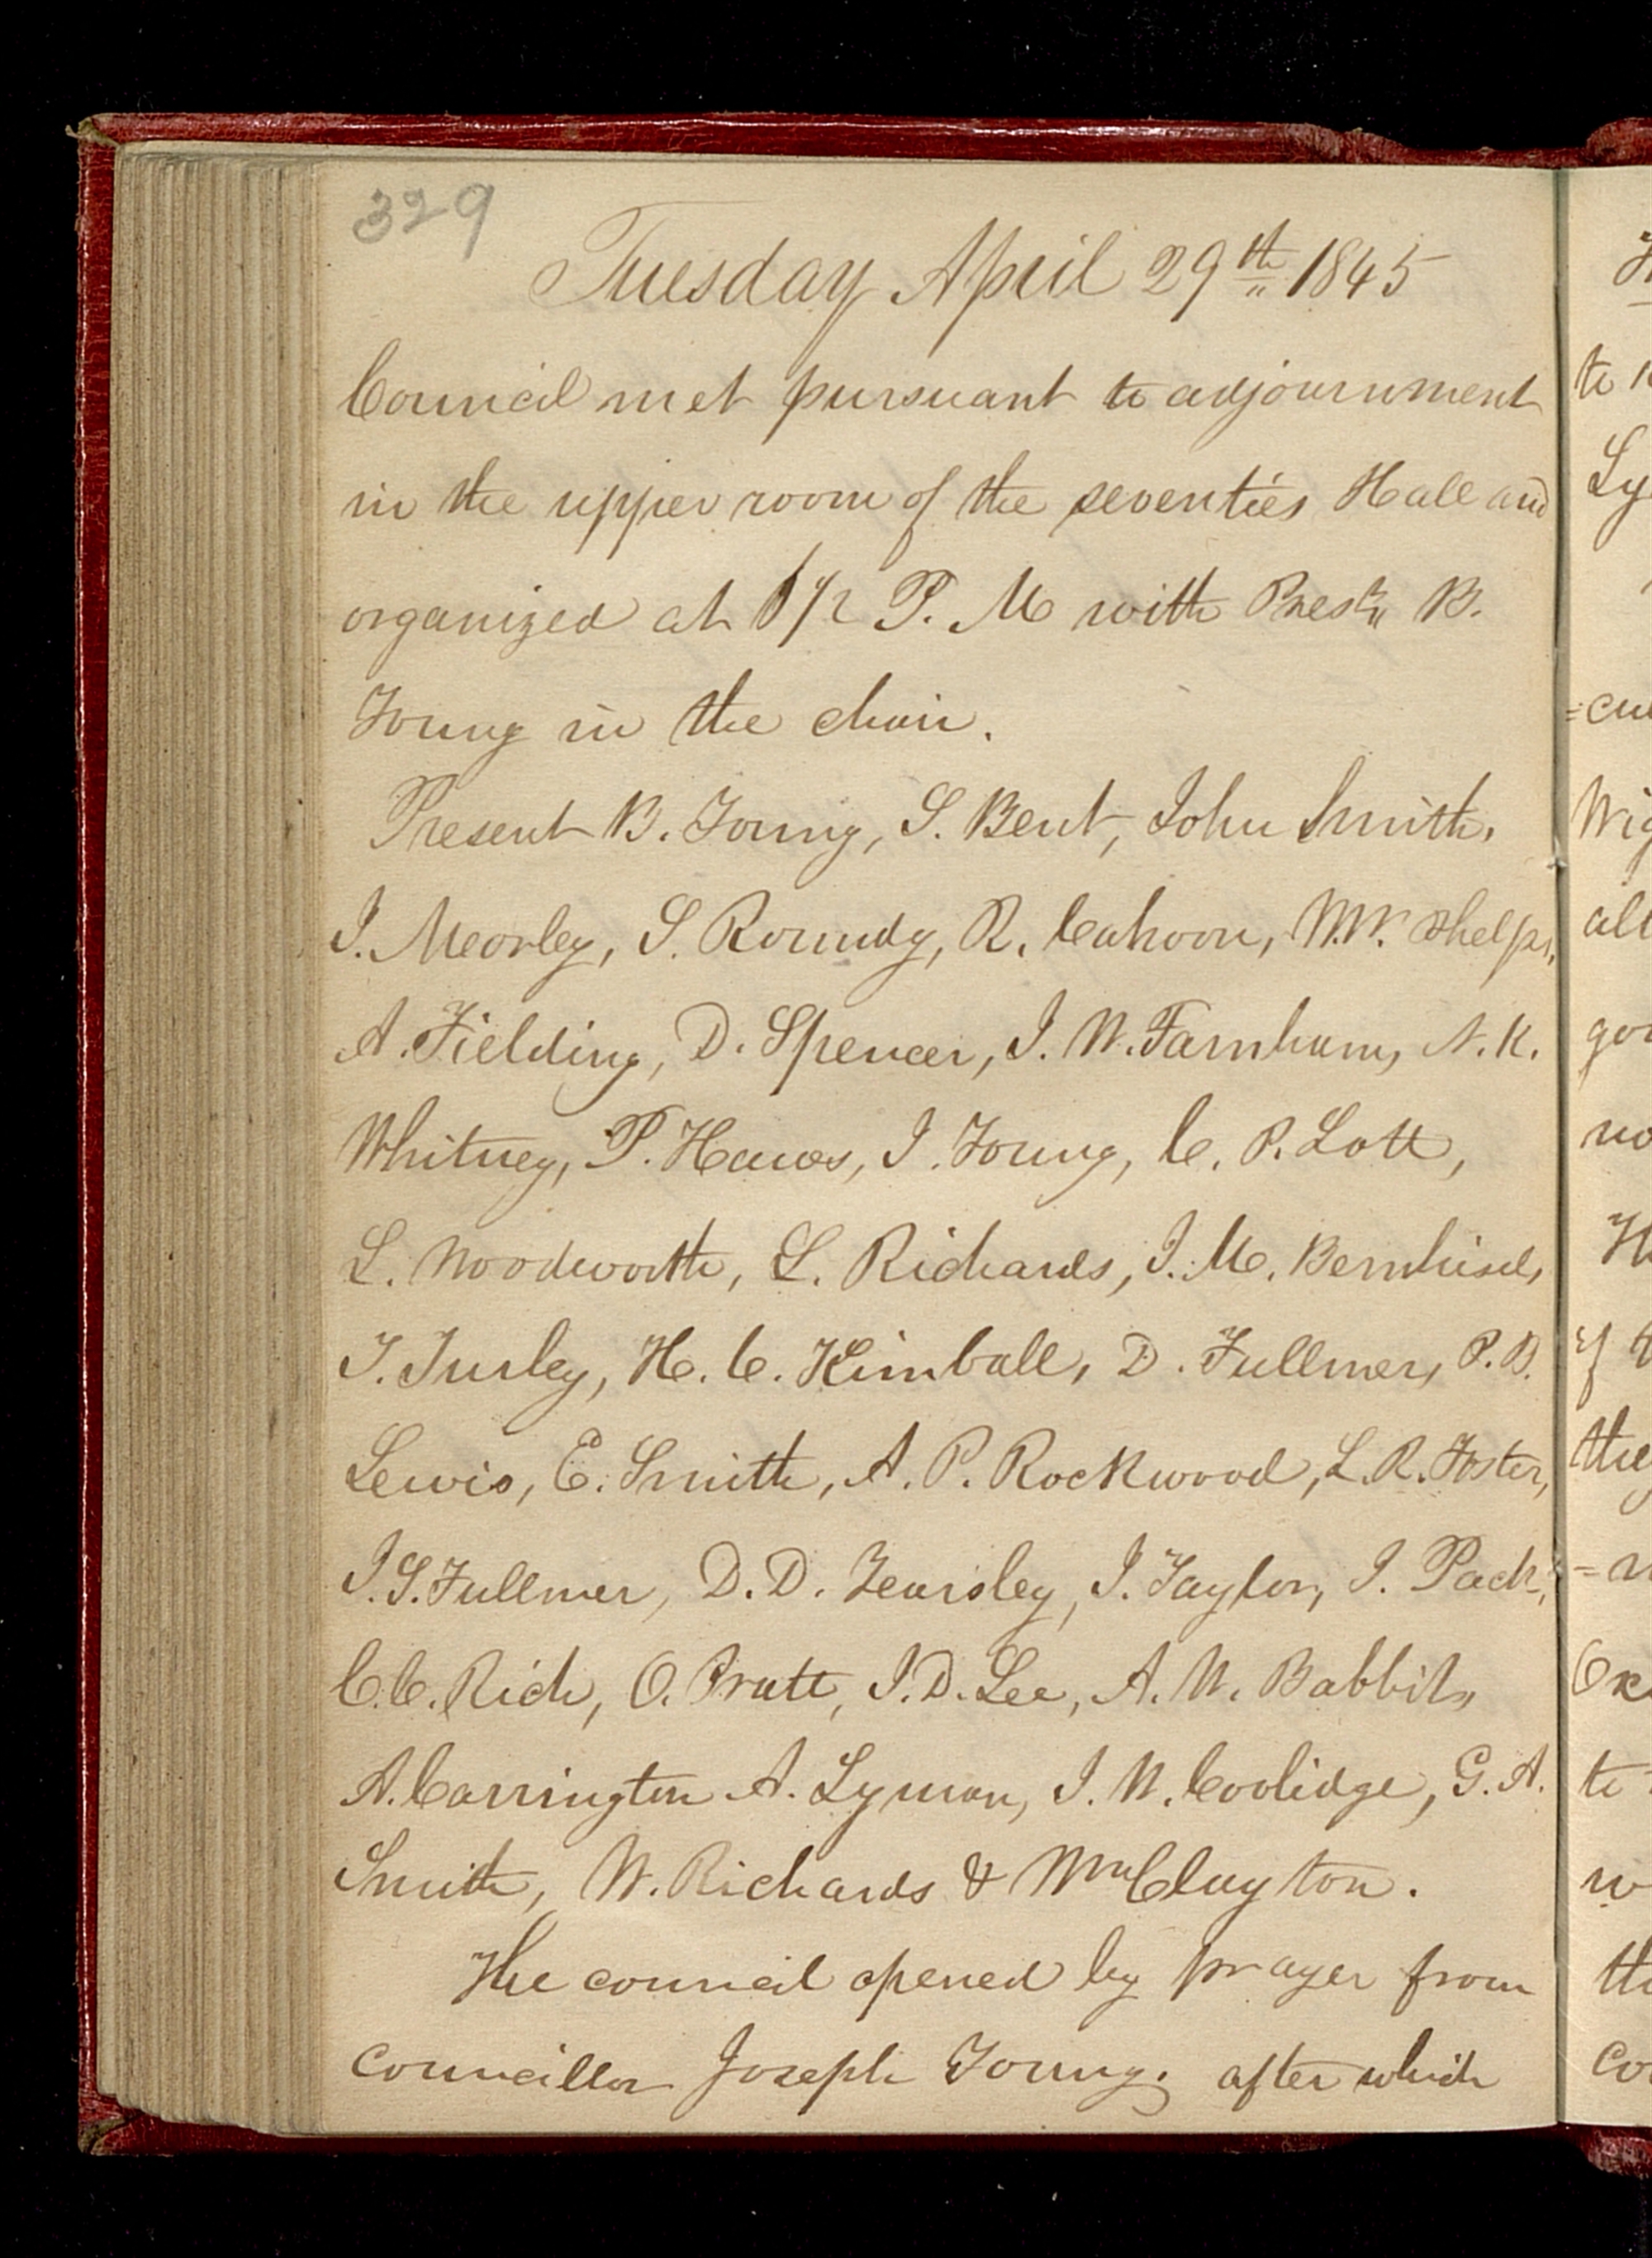 329
Tuesday April 29th 1845
Council met pursuant to adjournment
in the upper room of the seventies Hall and
organized at 1/2 P. M with Prest B.
Young in the chair.
Present B. Young, S. Bent, John Smith,
I. Meorley, S. Roundy, R. Cahoon, W.W. Phelps,
A. Fielding, D. Spencer, J. W. Farnham, N. K.
Whitney, P. Haws, J. Young, C. P. Lott,
L. Woodworth, L. Richards, J. M. Bernhisel,
T. Turley, H. C. Kimball, D. Fullmer, P. B.
Lewis, E. Smith, A. P. Rockwood, L. R. Foster,
J. S. Fullmer, D. D. Yearsley, J. Taylor, J. Pack,
C. C. Rich, O. Pratt, J. D. Lee, A. W. Babbit,
A. Carrington A. Lyman, J. W. Coolidge, G. A.
Smith, W. Richards & Wm Clayton.
The council opened by prayer from
councillor Joseph Young. after which